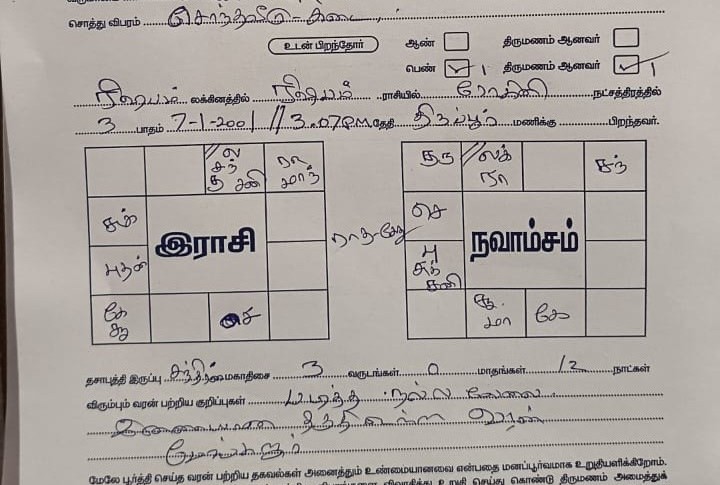 சொத்து விபரம் சொந்தவீடு - கடை,
உடன் பிறந்தோர் ஆண் திருமணம் ஆனவர்
பெண் ✓ 1 திருமணம் ஆனவர் ✓ 1
ரிஷபம் லக்கினத்தில் ரிஷபம் ராசியில் ரோகிணி நட்சத்திரத்தில்
3 பாதம் 7-1-2001 // 3.07PM தேதி திருப்பூர் மணிக்கு பிறந்தவர்.
// ல சந் கு சனி ரா மாந்
சுக் இராசி
புதன்
கே சூ செ
ராகு-கேது
குரு // லக் ரா சந்
செ நவாம்சம்
பு சுக் சனி
சூ. மா கே
தசாபுத்தி இருப்பு சந்திர மகாதிசை 3 வருடங்கள் 0 மாதங்கள் 12 நாட்கள்
விரும்பும் வரன் பற்றிய குறிப்புகள் படித்த நல்ல வேலை
தகுதி உள்ள வரன்
மேலே பூர்த்தி செய்த வரன் பற்றிய தகவல்கள் அனைத்தும் உண்மையானவை என்பதை மனப்பூர்வமாக உறுதியளிக்கிறோம்.
உறுதி செய்து கொண்டு திருமணம் அமைத்துக்